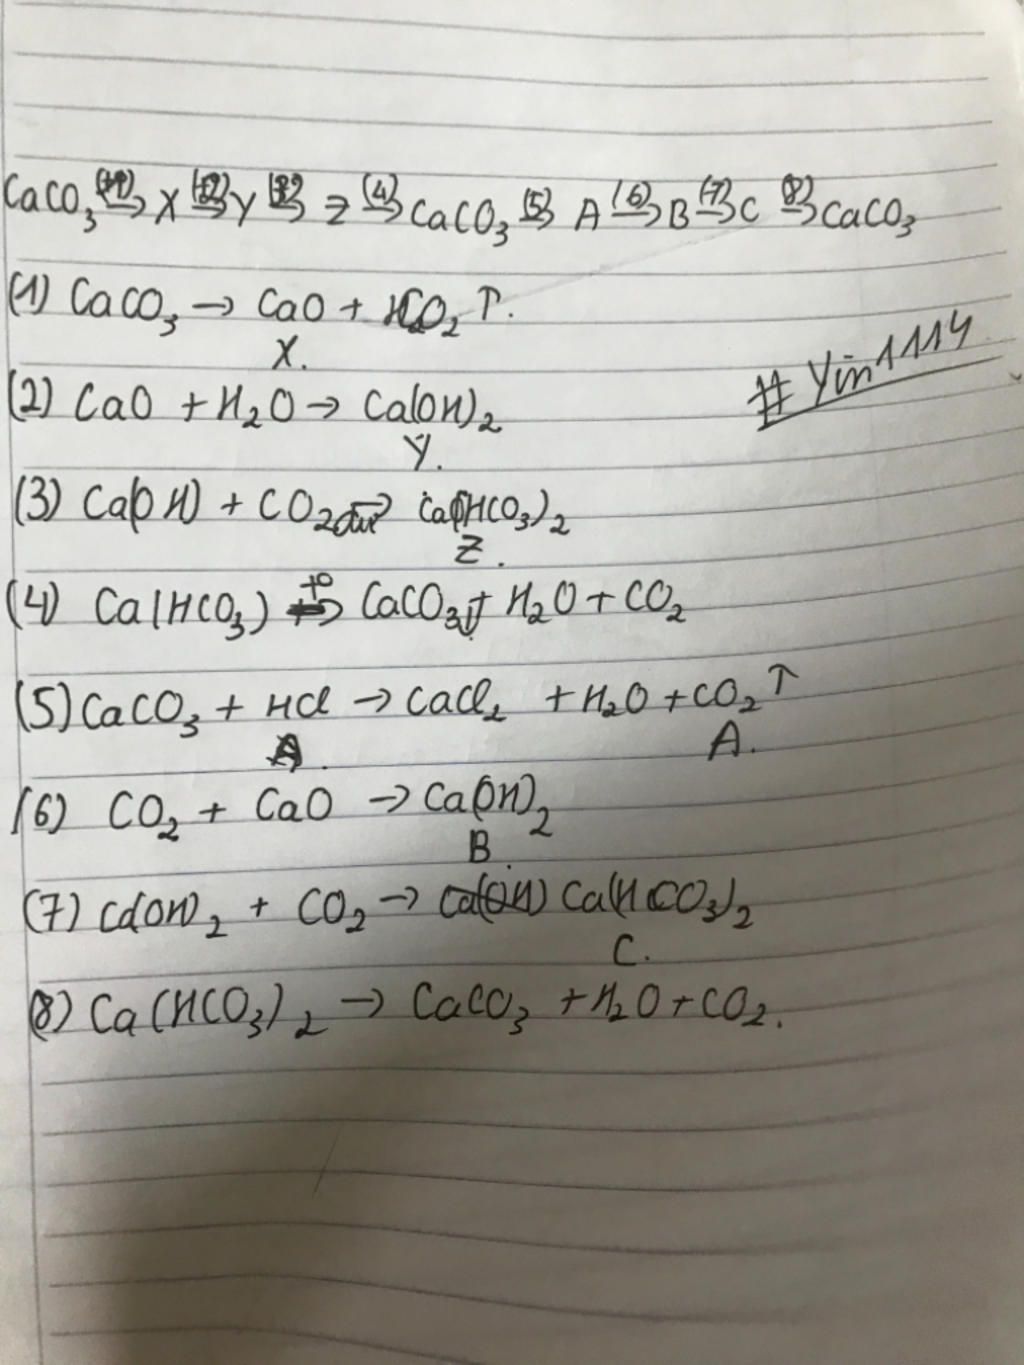 CaCO₃ (1)→ X (2)→ Y (3)→ Z (4)→ CaCO₃ (5)→ A (6)→ B (7)→ C (8)→ CaCO₃
(1) CaCO₃ → CaO + CO₂ ↑.
X.
# Yin1114
(2) CaO + H₂O → Ca(OH)₂
Y.
(3) Ca(OH) + CO₂ dư → Ca(HCO₃)₂
Z.
(4) Ca(HCO₃) t°→ CaCO₃↓ + H₂O + CO₂
(5) CaCO₃ + HCl → CaCl₂ + H₂O + CO₂ ↑
A.
(6) CO₂ + CaO → Ca(OH)₂
B.
(7) Ca(OH)₂ + CO₂ → Ca(HCO₃)₂
C.
(8) Ca(HCO₃)₂ → CaCO₃ + H₂O + CO₂.